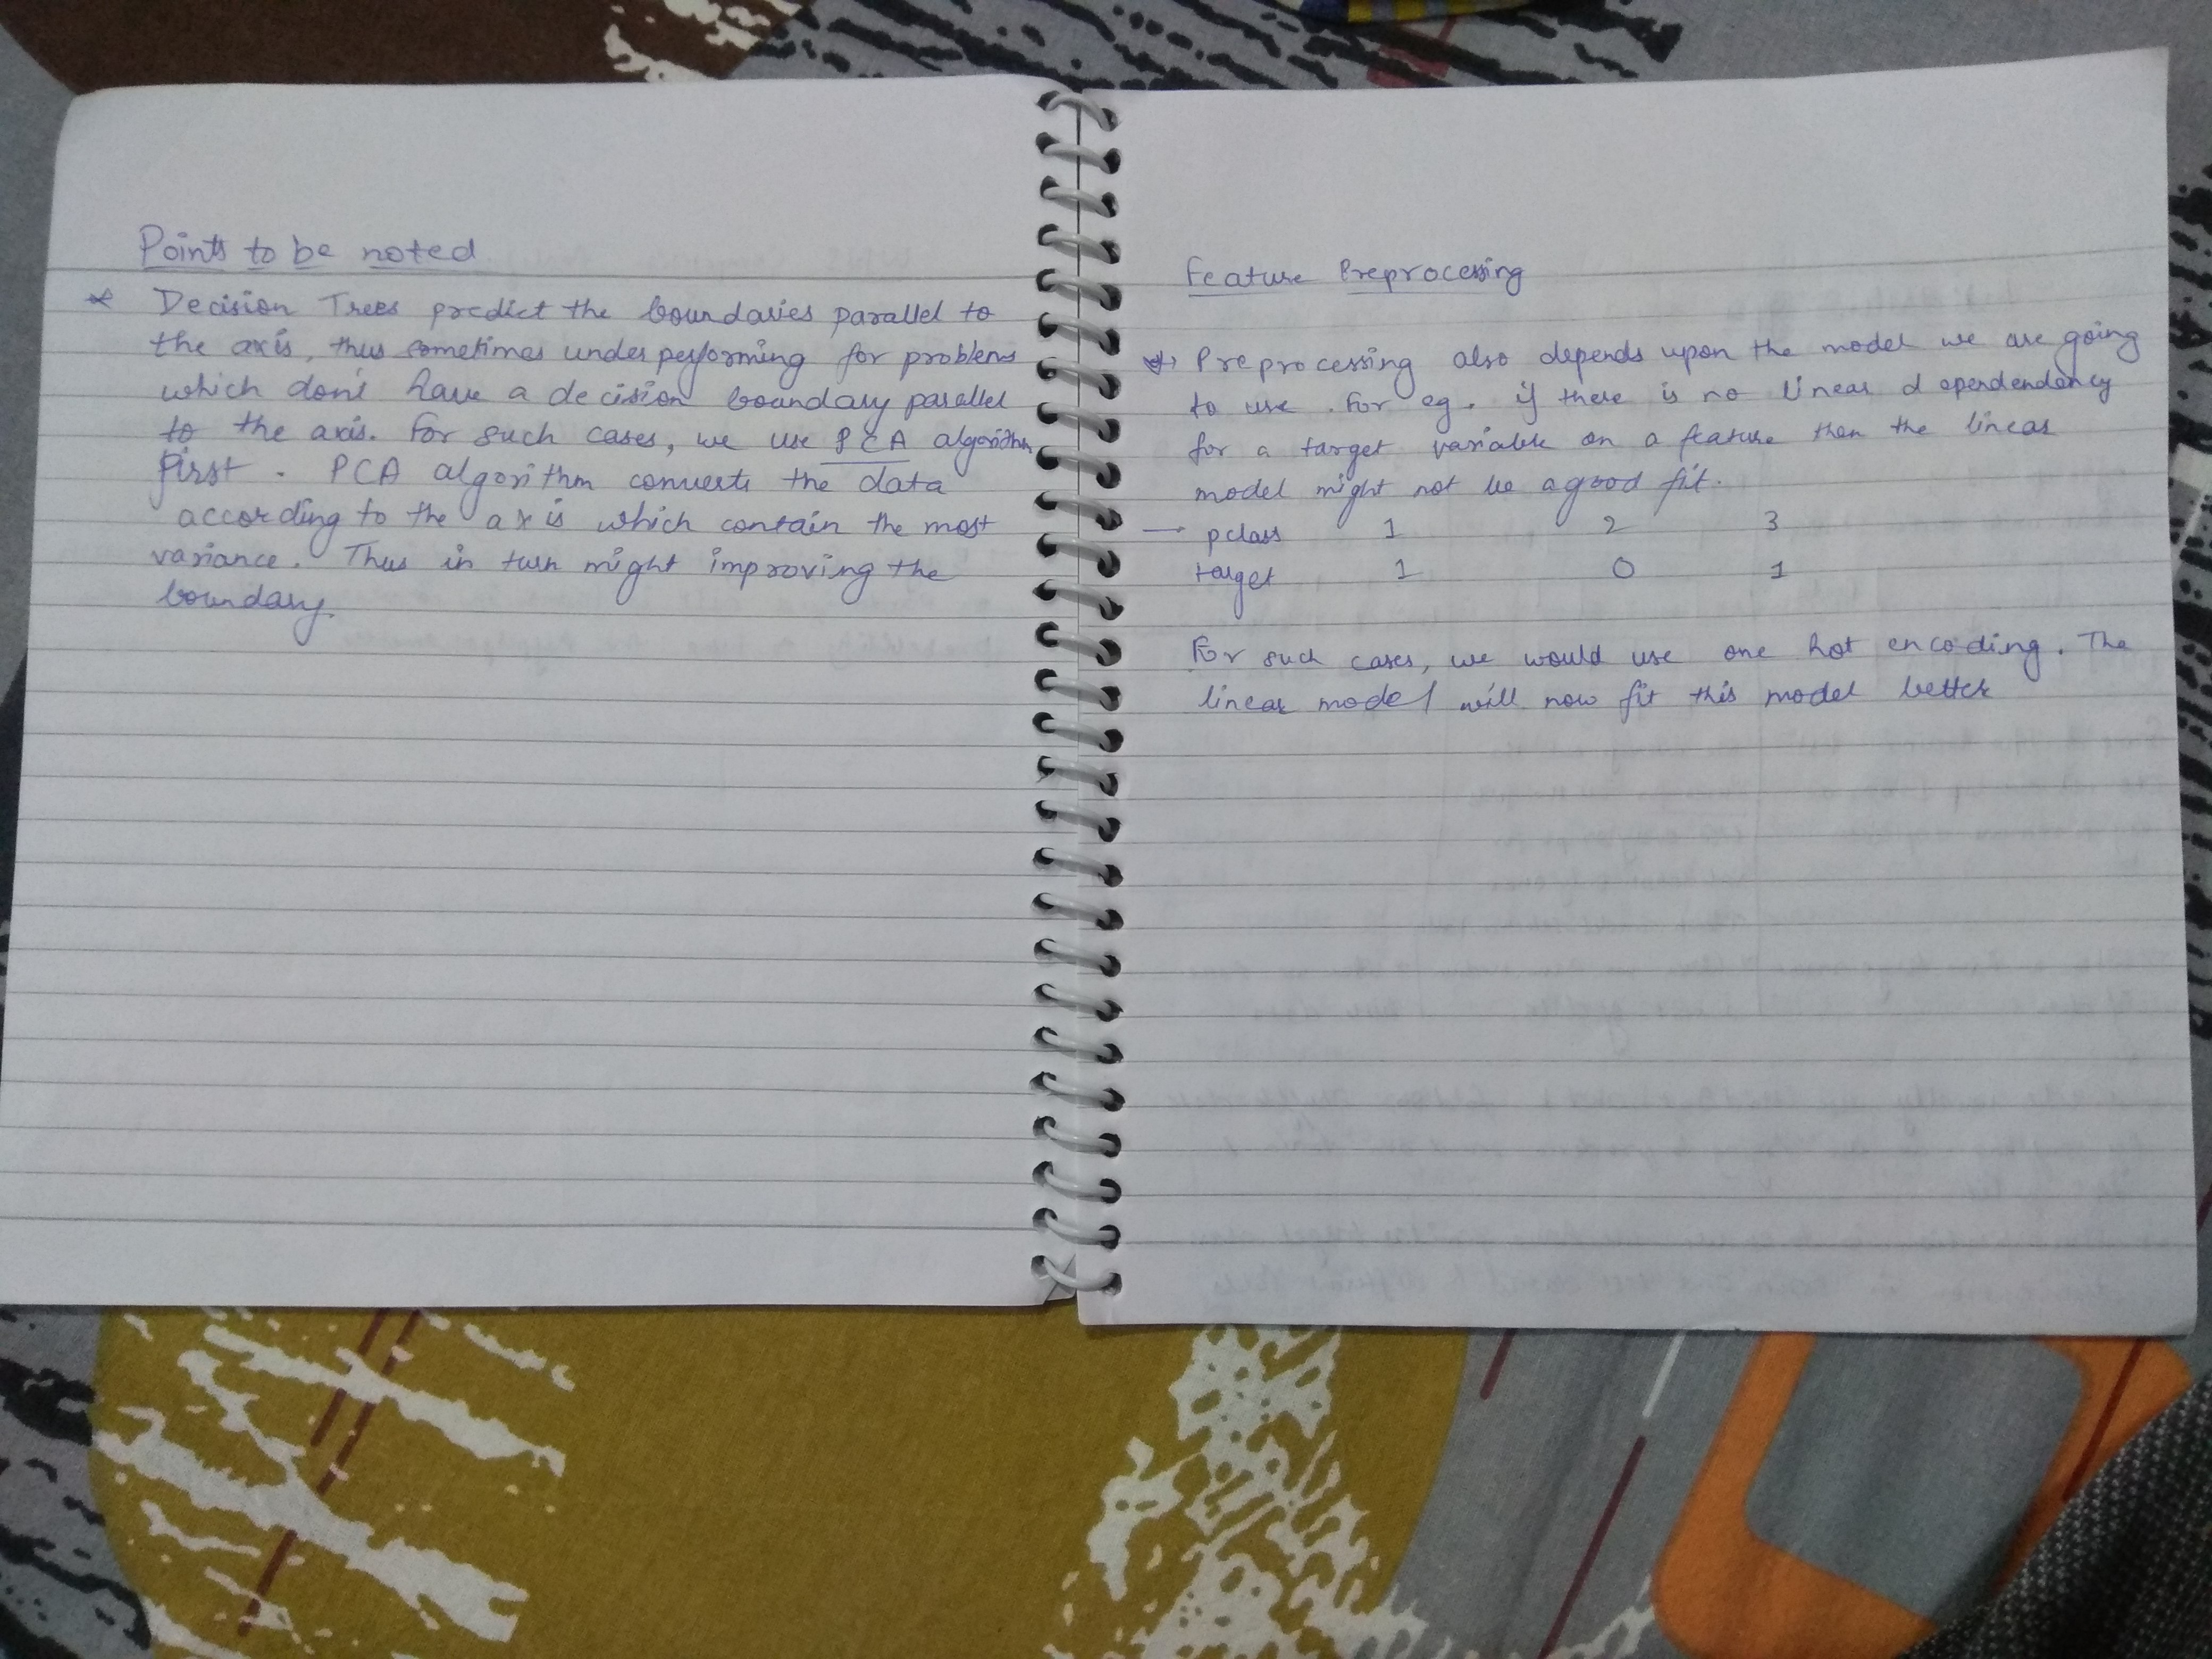 Points to be noted
* Decision Trees predict the boundaries parallel to
the axis, thus sometimes underperforming for problems
which don't have a decision boundary parallel
to the axis. For such cases, we use PCA algorithm
first. PCA algorithm converts the data
according to the axis which contain the most
variance. Thus in turn might improving the
boundary.
Feature Preprocessing
Preprocessing also depends upon the model we are going
to use. For eg. if there is no linear dependendency
for a target variable on a feature then the linear
model might not be a good fit.
→ pclass 1 2 3
target 1 0 1
For such cases, we would use one hot encoding. The
linear model will now fit this model better